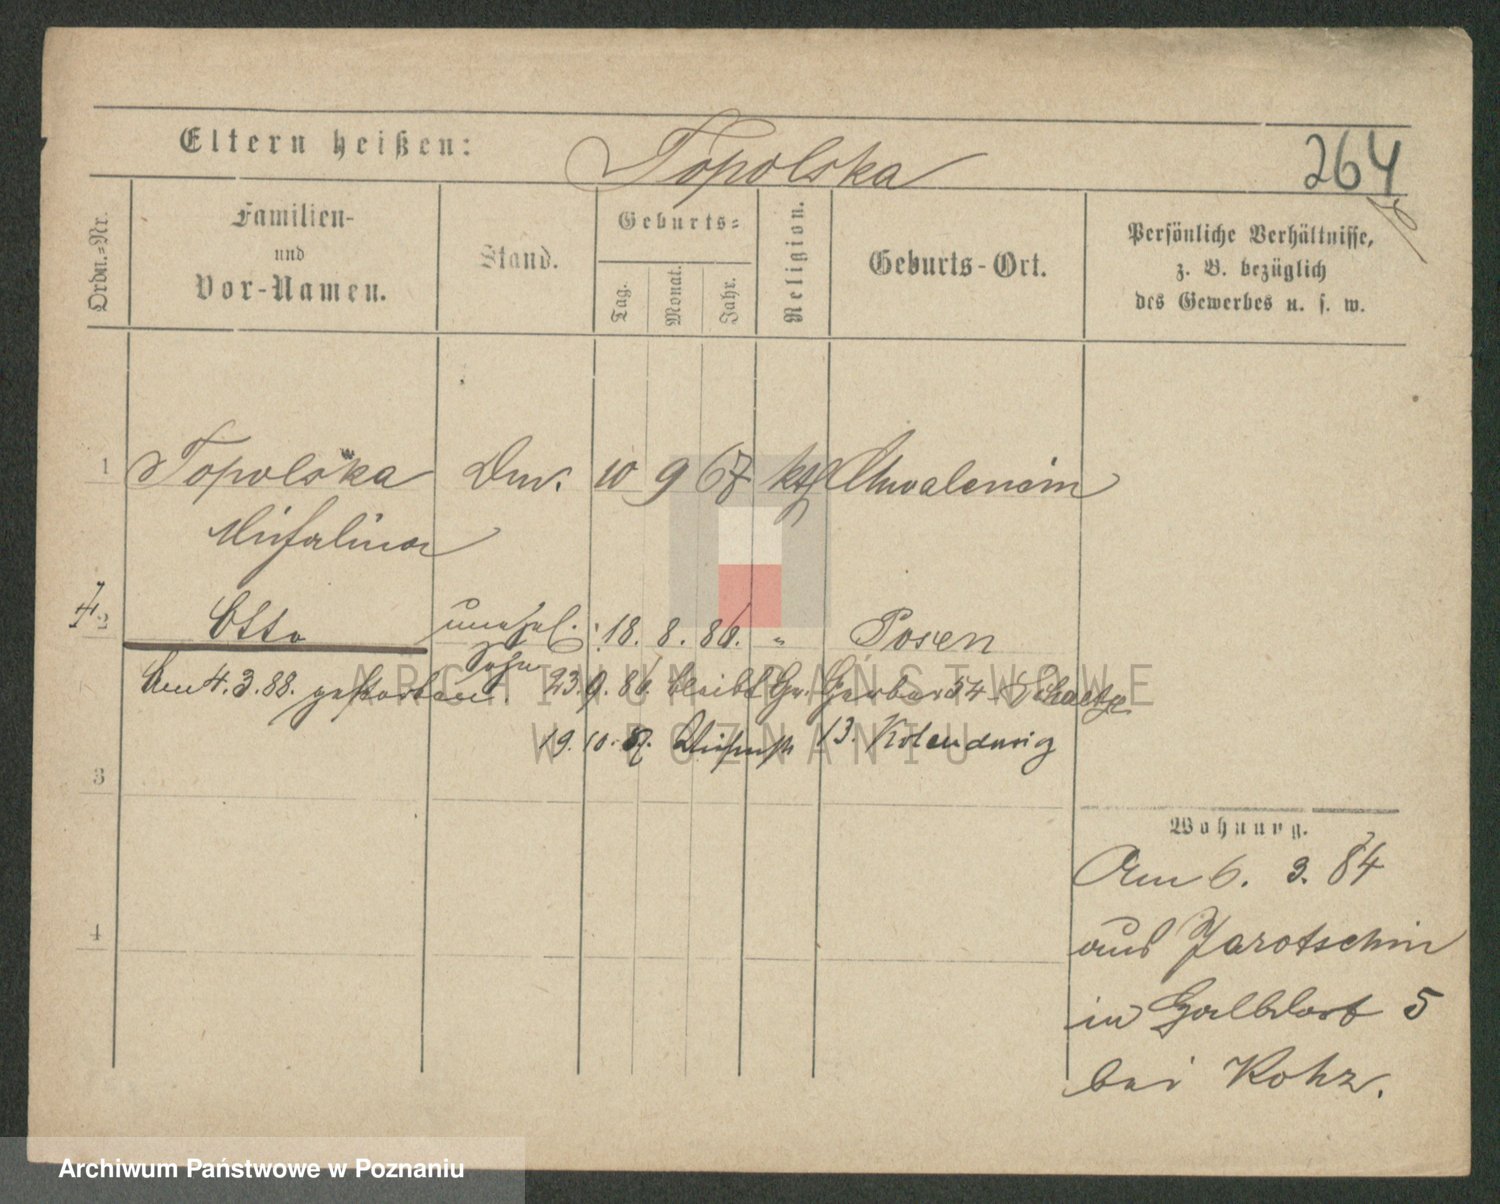 Eltern heißen: Topolska
264
Ordn.=Nr.
Familien-
und
Vor-Namen.
Stand.
Geburts=
Tag. Monat. Jahr.
Religion.
Geburts-Ort.
Persönliche Verhältnisse,
z. B. bezüglich
des Gewerbes u. s. w.
1 Topolska 10 9 67 kth
Michalina
2 Otto unehel. 18. 8. 86. " Posen
Sohn
Am 4. 3. 88. gestorben. 23. 9. 86. bleibt Gr. Gerber 54
19. 10. 13.
3
Wohnung.
Am 6. 3. 84
aus Jarotschin
4
in Halbdorf 5
bei
ARCHIWUM PAŃSTWOWE
W POZNANIU
Archiwum Państwowe w Poznaniu